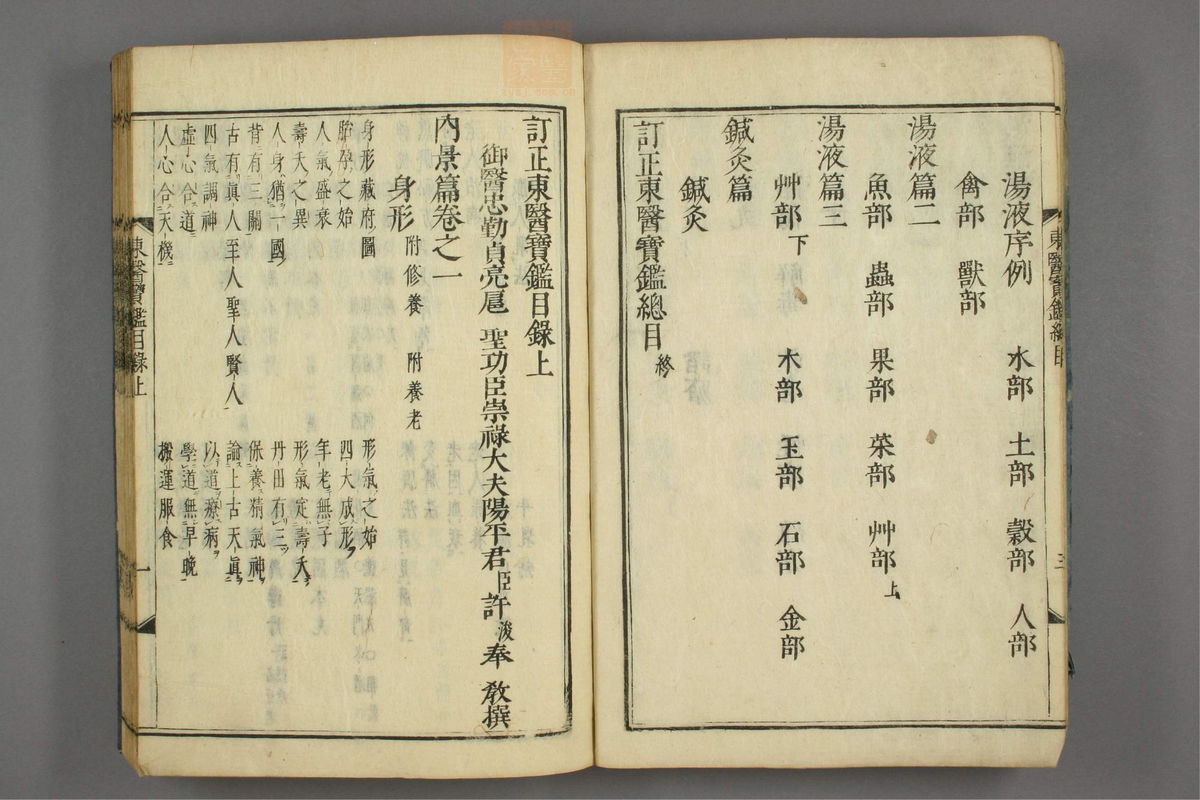 東醫寶鑑總目
三
湯液序例 水部 土部 穀部 人部
禽部 獸部
湯液篇二
魚部 蟲部 果部 菜部 艸部上
湯液篇三
艸部下 木部 玉部 石部 金部
鍼灸篇
鍼灸
訂正東醫寶鑑總目終
訂正東醫寶鑑目錄上
御醫忠勤貞亮扈 聖功臣崇祿大夫陽平君臣許浚奉 敎撰
內景篇卷之一
身形 附修養 附養老
身形藏府圖 形氣之始
胎孕之始 四大成形ヲ
人氣盛衰 年老無子
壽夭之異 形氣定壽夭ヲ
人身猶一國 丹田有三ツ
背有三關 保養精氣神ヲ
古有眞人至人聖人賢人 論上古天眞ヲ
四氣調神 以道療病ヲ
虛心合道 學道無早晚
人心合天機 搬運服食
東醫寶鑑目錄上
一